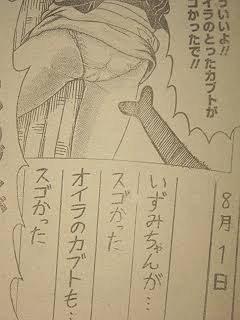 ういいよ!!
オイラのとったカブトが
スゴかったで!!
8月1日
いずみちゃんが…
スゴかった
オイラのカブトも…
スゴかった